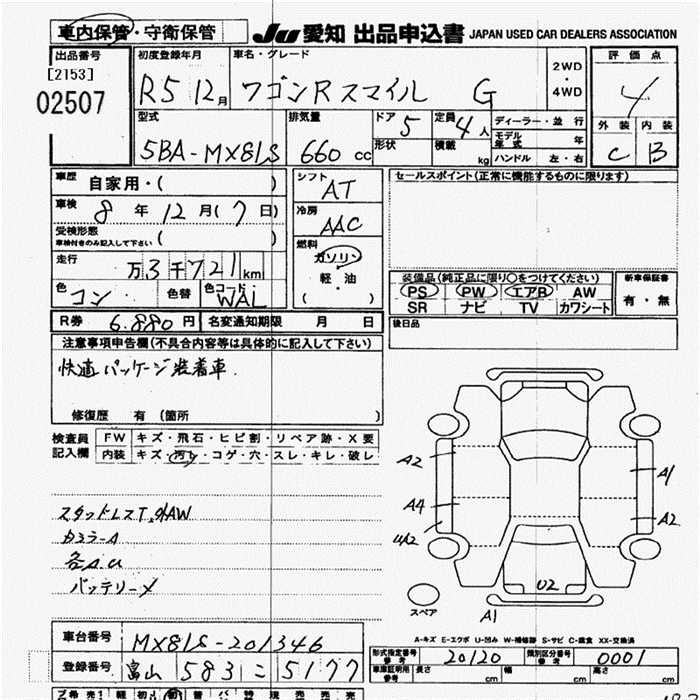 車内保管・守衛保管
JU 愛知 出品申込書 JAPAN USED CAR DEALERS ASSOCIATION
出品番号 初度登録年月 車名・グレード 評価点
[2153]
02507
R5 12月 ワゴンRスマイル G
2WD
・
4WD
4
型式 排気量 ドア 5 定員 4人 ディーラー・並行
外装 内装
5BA-MX81S 660cc
形状 積載 kg
モデル年式 年
ハンドル 左・右
C B
車歴 自家用・( )
シフト AT
セールスポイント(正常に機能するものに限ります)
車検 8年12月(7日)
冷房 AAC
受検形態 ( )
車検付きのみ記入して下さい
燃料 ガソリン
軽・油
( )
走行 万3千721km
装備品(純正品に限り○をつけてください) 新車保証書
色 コン 色替 色コード WAL
PS PW エアB AW
有・無
SR ナビ TV カワシート
R券 6.880円 名変通知期限 月 日
後日品
注意事項申告欄(不具合内容等は具体的に記入して下さい)
快適パッケージ装着車.
修復歴 有(箇所 )
検査員
記入欄
FW キズ・飛石・ヒビ割・リペア跡・X要
内装 キズ・汚レ・コゲ・穴・スレ・キレ・破レ
A2
A1
A4
A2
スタッドレスT.外AW
カララーA
バッテリーメ
U2
スペア
A1
A-キズ E-エクボ U-凹み W-補修跡 S-サビ C-腐食 XX-交換済
車台番号 MX81S-201346
型式指定番号 参考 20120 類別区分番号 参考 0001
登録番号 富山 583 こ 5177
車庫証明用 参考 長さ cm 幅 cm 高さ cm